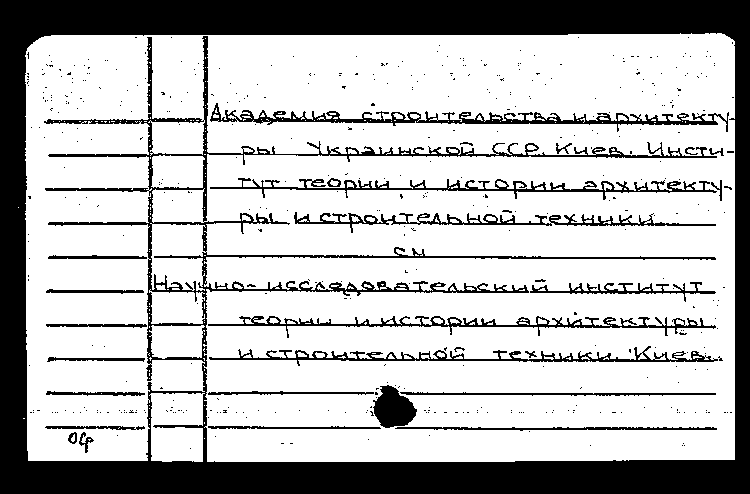 Академия строительства и архитекту-
ры Украинской ССР. Киев. Инсти-
тут теории и истории архитекту-
ры и строительной техники
см
Научно-исследовательский институт
теории и истории архитектуры
и строительной техники. Киев.